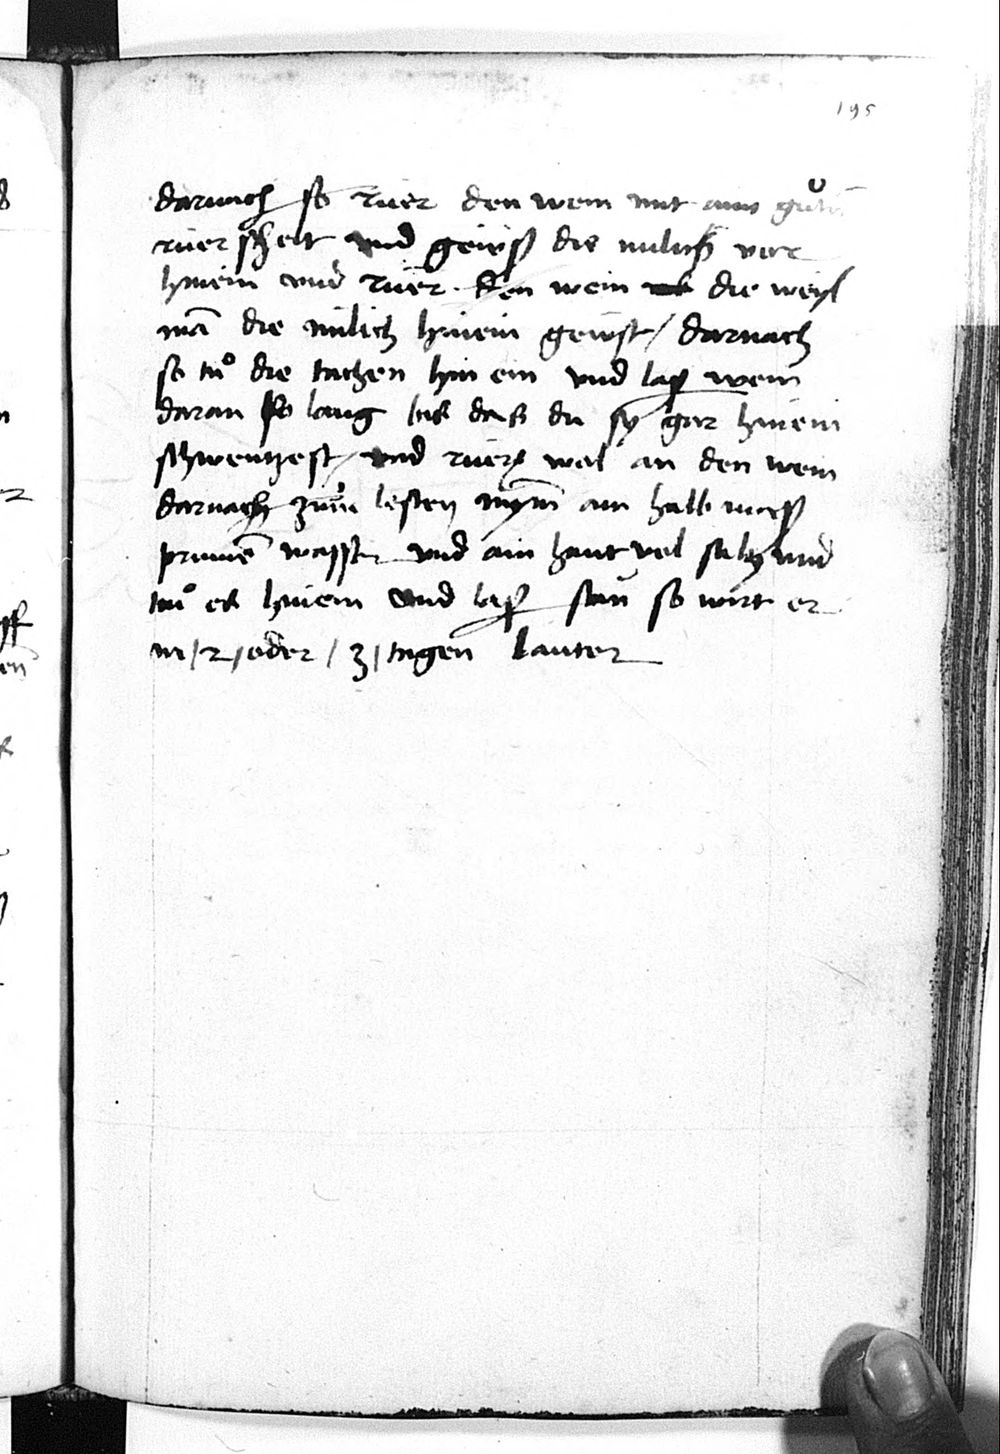 195
darnach so rüer den wein mit ainem gůten
rüer scheit vnd geüß die milich vor
hinein vnd rüer den wein die weyl
mā die milich hinein geüst / darnach
so tuͦ die tachen hin ein vnd laß wein
daran so lang bis das du sy gar hinein
schwentzest / vnd rüers wol an den wein
darnach zum lesten nym̄ ain halb mass
prunnē wasser vnd ain hant vol saltz vnd
tuͦ es hinein vnd laß stan so wirt er
in / 2 / oder / 3 / tagen lauter